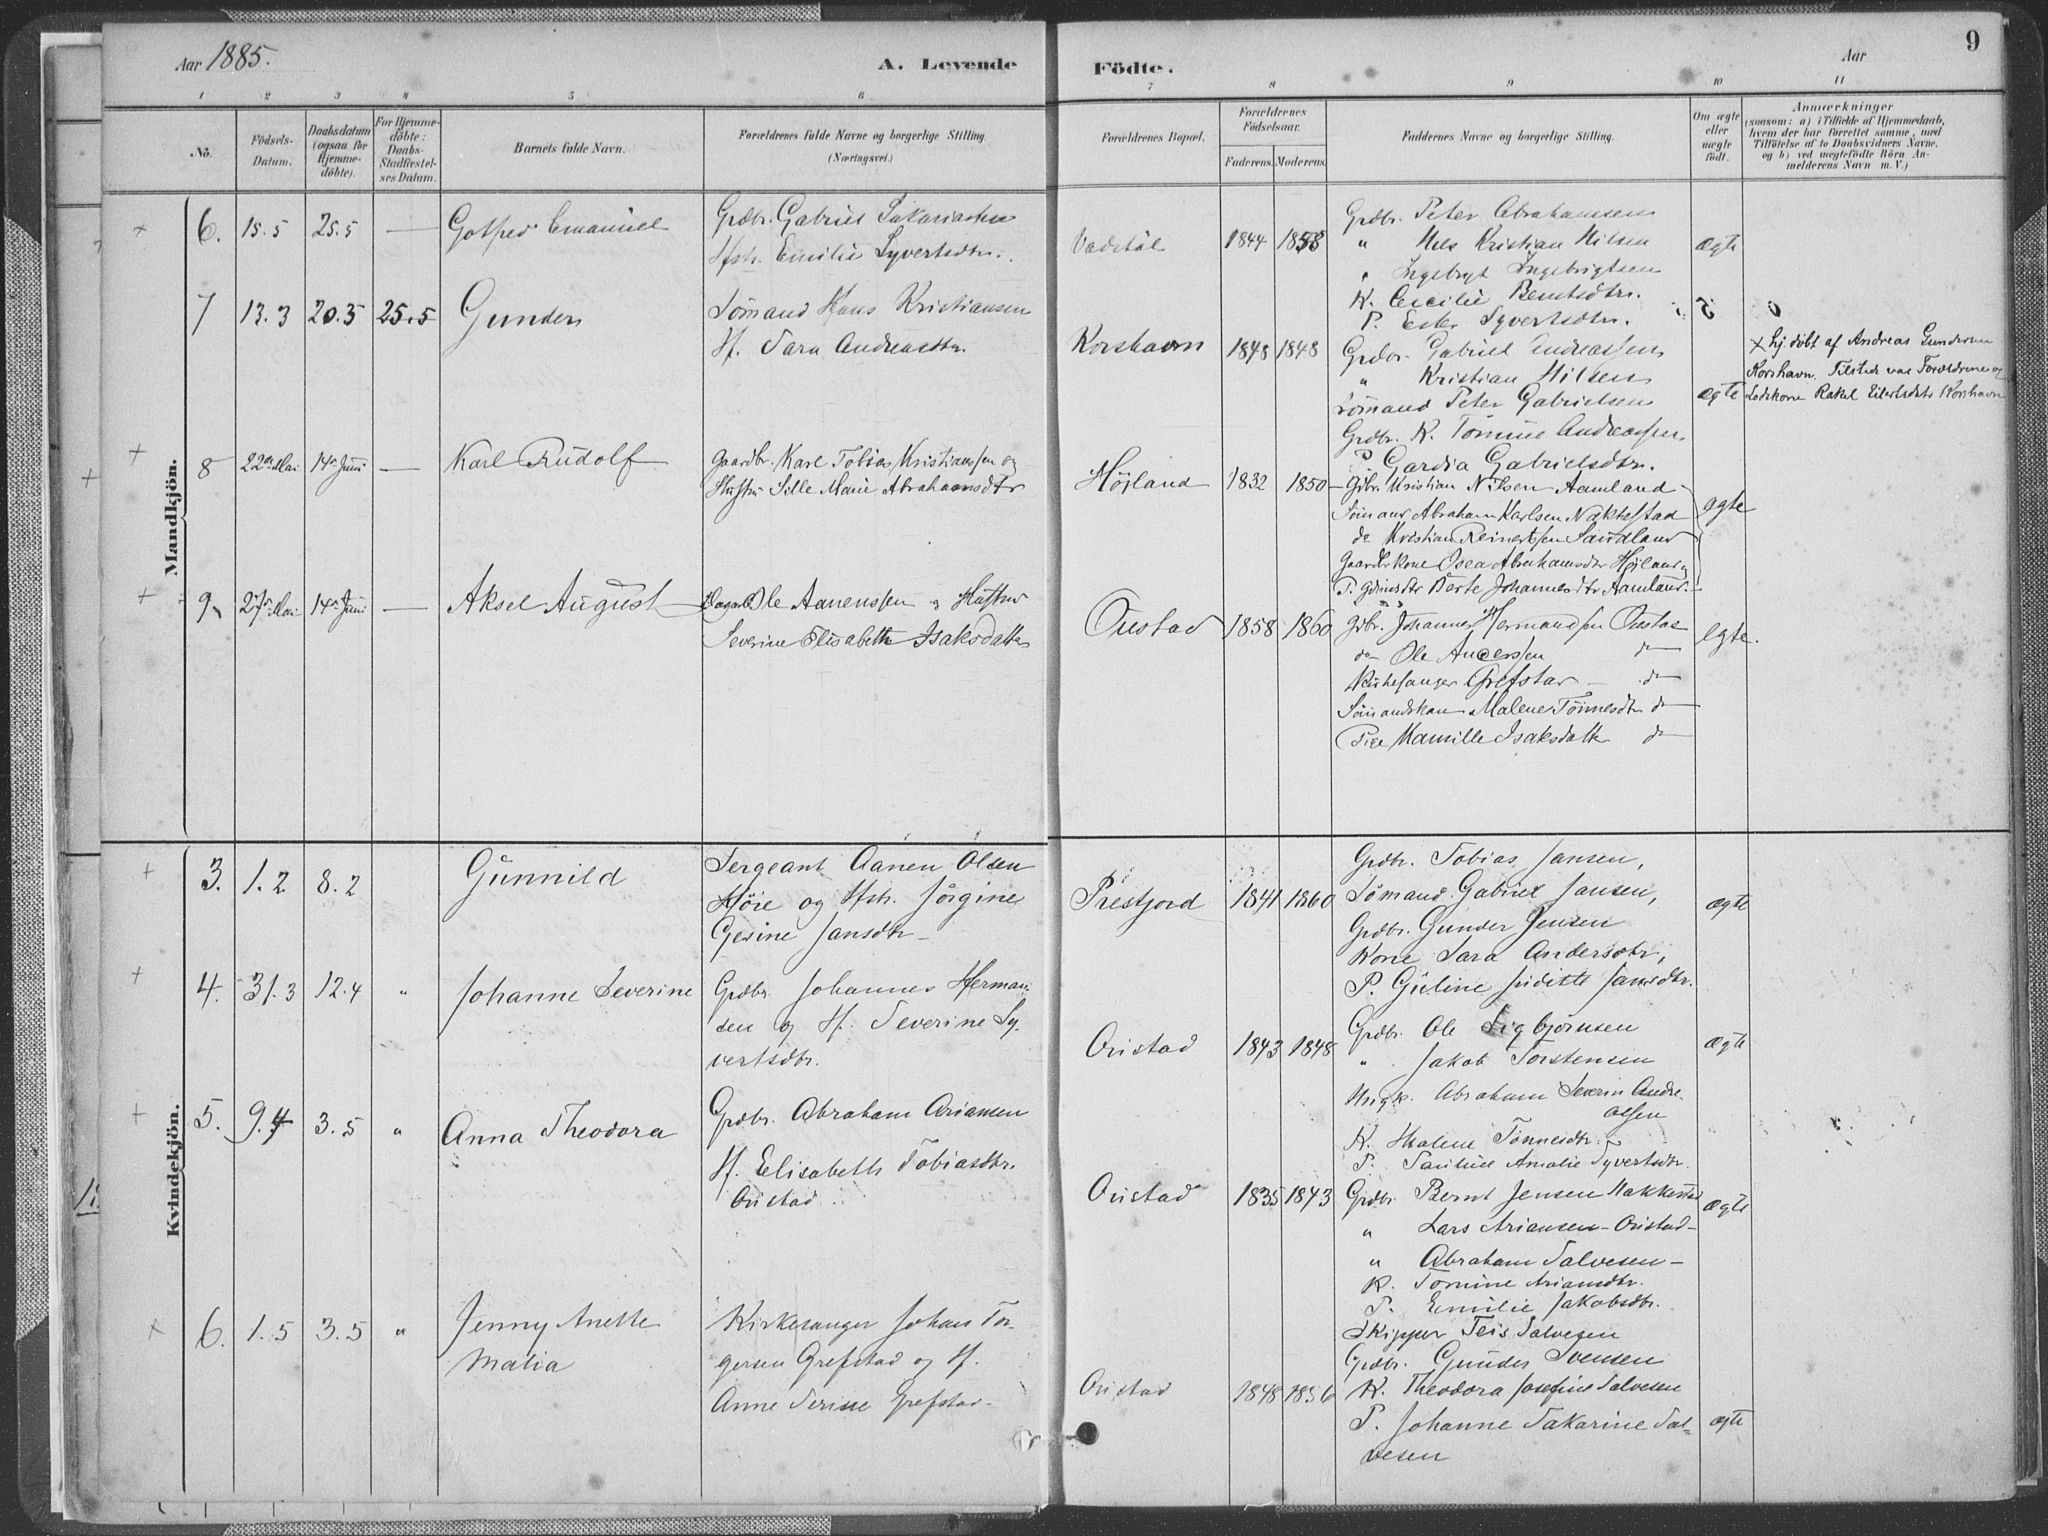 Aar 1885.
A. Levende Födte.
Aar
9
1 2 3 4 5 6 7 8 9 10 11
No.
Födsels-Datum.
Daabsdatum (ogsaa for Hjemmedöbte).
For Hjemmedöbte: Daabs-Stadfæstelses Datum.
Barnets fulde Navn.
Forældrenes fulde Navne og borgerlige Stilling.
(Næringsvei.)
Forældrenes Bopæl.
Forældrenes Födselsaar.
Faderens. Moderens.
Faddernes Navne og borgerlige Stilling.
Om ægte eller uægte födt.
Anmærkninger
(saasom: a) i Tilfælde af Hjemmedaab,
hvem der har forrettet samme, med
Tilföielse af to Daabsvidners Navne,
og b) ved uægtefödte Börn An-
melderens Navn m. V.)
Mandkjön.
6. 15.5 25.5 — Gotfred Emanuel
Grdbr. Gabriel Sakariassen
Hstr. Emilie Syvertsdtr.
Vadstöl 1844 1858
Grdbr. Peter Abrahamsen
" Nils Kristian Nilsen
" Ingebrgt Ingebrigtsen
K. Cecilie Berntsdtr.
P. Ester Syvertsdtr.
ægte
7 13.3 20.3 25.5 Gunder
Sömand Hans Kristiansen
H. Sara Andreasdtr.
Korshavn 1848 1848
Grdbr. Gabriel Andreassen
" Kristian Nilsen
Sömand Peter Gabrielsen
Grdbr. K. Tomine Andreassen
P Gardia Gabrielsdtr.
ægte
+ hj. döbt af Andreas Gundersen
Korshavn. Tilstede var Forældrene og
Lodskone Rakel Eilertsdtr Korshavn
8 22de Mai 14de Juni — Karl Rudolf
Gaardbr. Karl Tobias Kristianssen og
Hustru Sille Marie Abrahamsdtr
Höjland 1832 1850
Gdbr. Kristian Nilsen Aamland
Sömand Abraham Karlsen Nakkestad
do Kristian Reinertsen Sandland
Gaardbrkone Osea Abrahamsdtr Höiland og
P. Berte Johannesdtr Aamland.
ægte
9 27de Mai 14de Juni — Aksel August
Ole Aanenssen og Hustru
Severine Elisabeth Isaksdatter
Oustad 1858 1860
Gdbr. Johannes Hermandsen Oustad
do Ole Anderssen do
Kirkesanger Grefstad — do
Sömandskone Malene Tönnesdtr do
Pige Kamille Isaksdatter do
egte.
Kvindekjön.
3. 1.2 8.2 Gunnild
Sergeant Aanen Olsen
Höie og Hstr. Jörgine
Gesine Jansdtr
Prestjord 1841 1860
Grdbr. Tobias Jansen,
Sömand Gabriel Jansen,
Grdbr. Gunder Jensen
Kone Sara Andersdtr,
P. Guline Juditte Jansdtr.
ægte
4. 31.3 12.4 " Johanne Severine
Grdbr. Johannes Herman-
sen og H. Severine Sy-
vertsdtr.
Oustad 1843 1848
Grdbr. Ole Sigbjörnsen
" Jakob Torstensen
Ungk. Abraham Severin Andre-
assen
K. Malene Tönnesdtr.
P. Pauline Amalie Syvertsdtr.
ægte
5. 9.4 3.5 " Anna Theodora
Grdbr. Abraham Ariansen
H. Elisabeth Tobiasdtr.
Oustad.
Oustad 1835 1843
Grdbr. Bernt Jensen Nakkestad
" Lars Ariansen - Oustad -
" Abraham Salvesen -
K. Tomine Ariansdtr.
P. Emilie Jakobsdtr.
ægte
6. 1.5 3.5 " Jenny Anette
Malia
Kirkesanger Johan Tor-
gersen Grefstad og H.
Anne Serine Grefstad.
Oustad 1848 1856
Skipper Teis Salvesen
Grdbr. Gunder Svensen
K. Theodora Josefine Salvesen
P. Johanne Sakarine Sal-
vesen
ægte